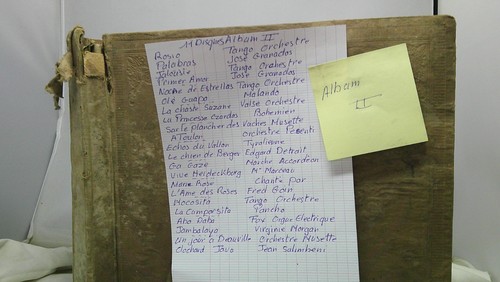 11 Disques Album II
Rose Tango Orchestre
Palobras José Granados
Jalousie Tango Orchestre
Primer Amor José Granados
Noche de Estrellas Tango Orchestre
Olé Guapa Malando
La chaste Suzane Valse Orchestre
La Princesse Czardas Bohemien
Sur le plancher des Vaches Musette
A Toulon orchestre
Echos du Vallon Tyrolienne
Le chien de Berger Edgard Detrait
Ga Gaze Marche Accordéon
Vive Heideckberg Mce Marceau
Marie Rose Chanté par
L'Ame des Roses Fred Goin
Mocosita Tango Orchestre
La Comparsita Yancho
Aba Daba Fox Orgue Electrique
Jambalaya Virginie Morgan
un jour à Deauville Orchestre Musette
Clochard Java Jean Salimbeni
Album
II